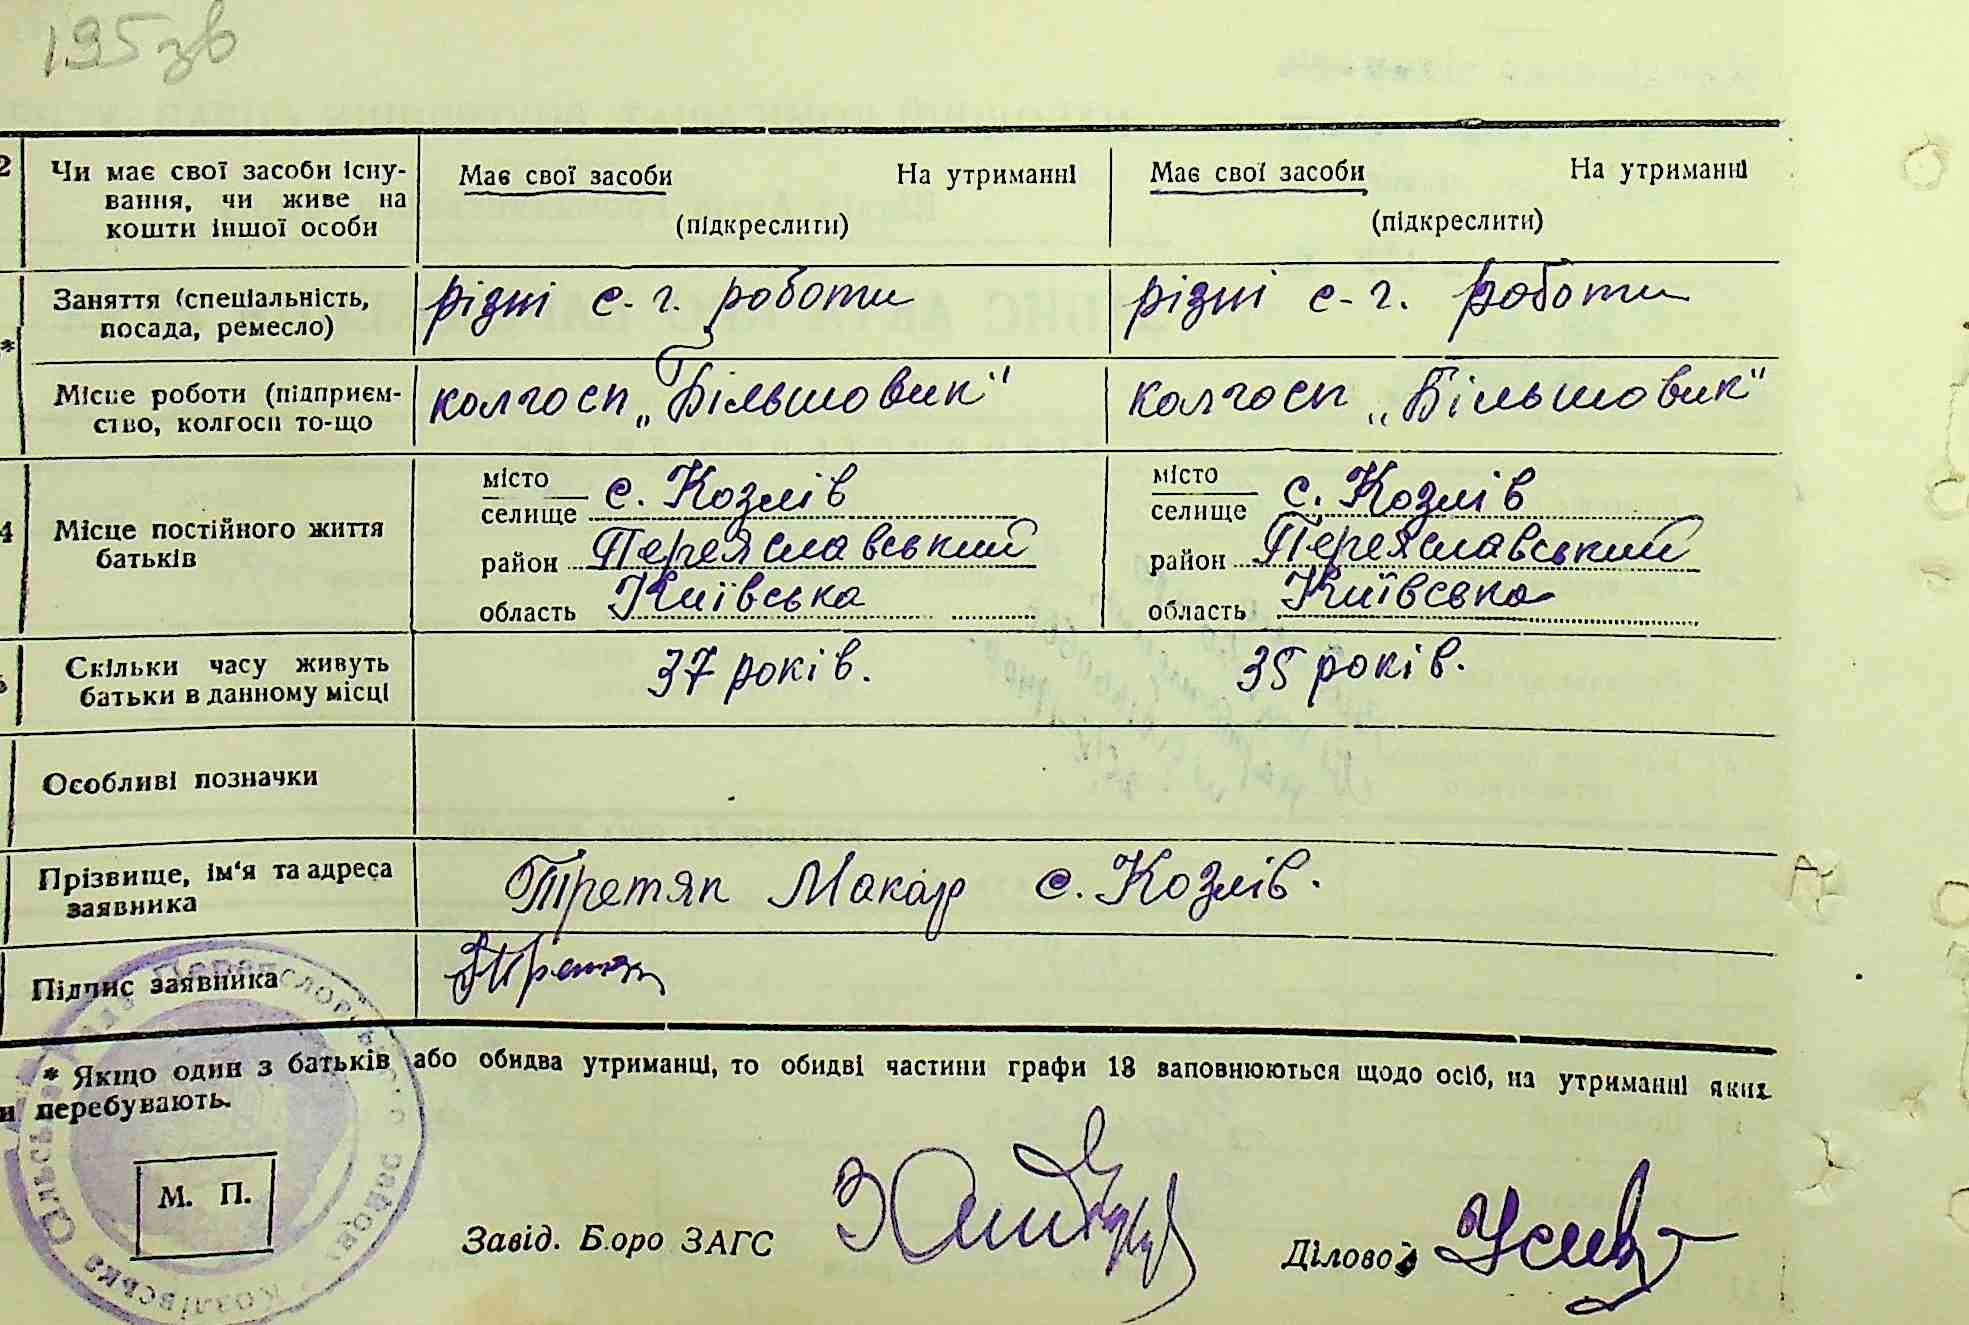 195 зв
2 Чи має свої засоби існу-
вання, чи живе на
кошти іншої особи
Має свої засоби На утриманні
(підкреслити)
Має свої засоби На утриманні
(підкреслити)
* Заняття (спеціальність,
посада, ремесло)
різні с-г. роботи
різні с-г. роботи
Місце роботи (підприєм-
ство, колгосп то-що
колгосп „Більшовик"
колгосп „Більшовик"
4 Місце постійного життя
батьків
місто
селище с. Козлів
район Переяславський
область Київська
місто
селище с. Козлів
район Переяславський
область Київська
Скільки часу живуть
батьки в данному місці
37 років.
35 років.
Особливі позначки
Прізвище, ім'я та адреса
заявника
Третяк Макар с. Козлів.
Підпис заявника
Третяк
* Якщо один з батьків або обидва утриманці, то обидві частини графи 13 заповнюються щодо осіб, на утриманні яких
и перебувають.
М. П.
Завід. Бюро ЗАГС
Діловод
Козлівська Сільська Рада